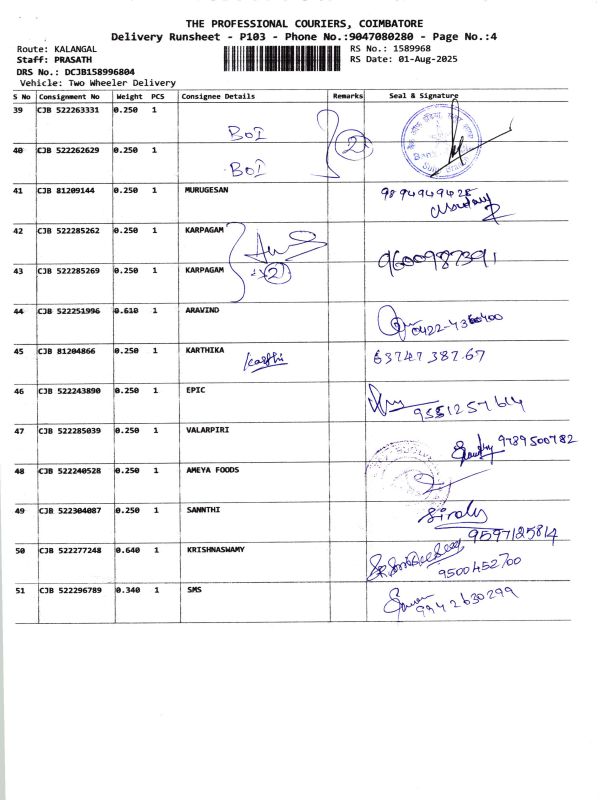 THE PROFESSIONAL COURIERS, COIMBATORE
Delivery Runsheet - P103 - Phone No.:9047080280 - Page No.:4
Route: KALANGAL RS No.: 1589968
Staff: PRASATH RS Date: 01-Aug-2025
DRS No.: DCJB158996804
Vehicle: Two Wheeler Delivery
S No Consignment No Weight PCS Consignee Details Remarks Seal & Signature
39 CJB 522263331 0.250 1 BOI 2
40 CJB 522262629 0.250 1 BOI
41 CJB 81209144 0.250 1 MURUGESAN 9894949428
42 CJB 522285262 0.250 1 KARPAGAM
43 CJB 522285269 0.250 1 KARPAGAM 2 9600987391
44 CJB 522251996 0.610 1 ARAVIND 0422-4360400
45 CJB 81204866 0.250 1 KARTHIKA 63747 38767
46 CJB 522243890 0.250 1 EPIC 9551257614
47 CJB 522285039 0.250 1 VALARPIRI 9789500782
48 CJB 522240528 0.250 1 AMEYA FOODS
49 CJB 522304087 0.250 1 SANNTHI 9597125814
50 CJB 522277248 0.640 1 KRISHNASWAMY 9500452700
51 CJB 522296789 0.340 1 SMS 9942630299